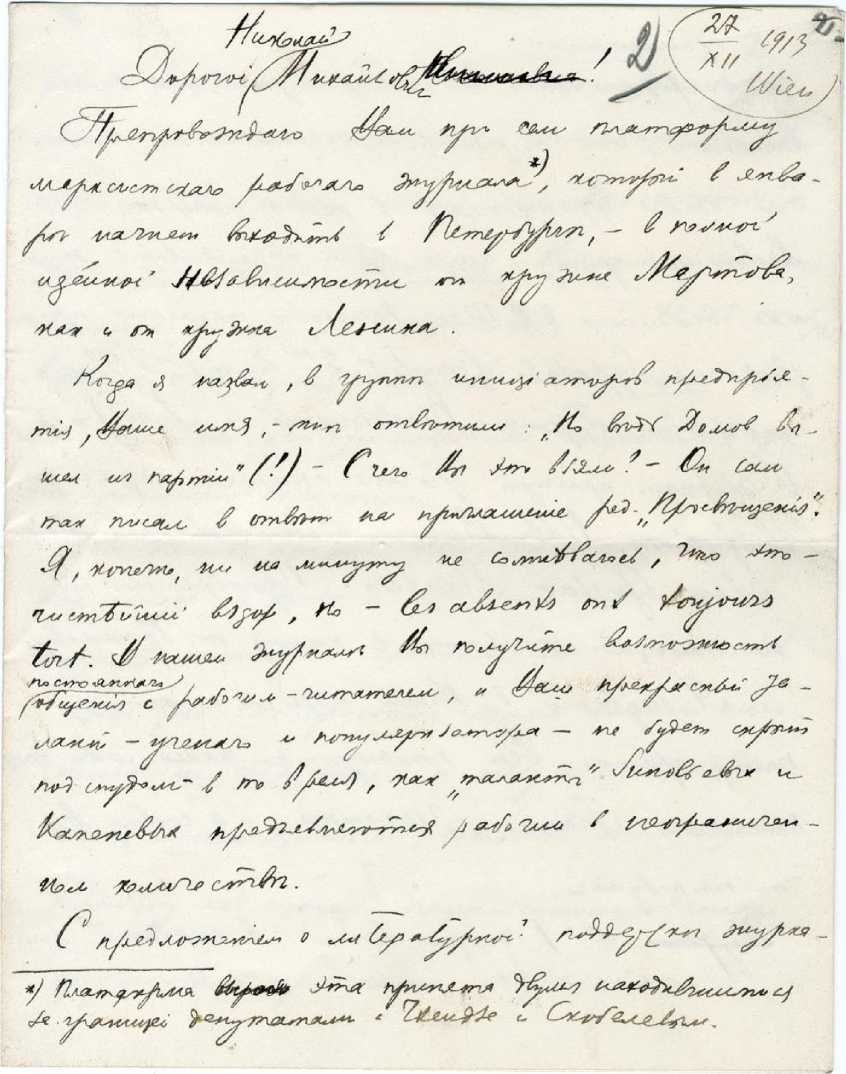 27
XII 1913
Wien
2)
Николай
Дорогой Михайлович!
Препровождаю Вам при сем платформу
марксистскаго рабочаго журнала*), который в янва-
ре начнет выходить в Петербурге, – в полной
идейной независимости от кружка Мартова,
как и от кружка Ленина.
Когда я назвал, в группе инициаторов предпрiя-
тiя, Ваше имя, – мне ответили: „Но ведь Домов вы-
шел из партiи" (!) – С чего Вы это взяли? – Он сам
так писал в ответ на приглашенiе ред. „Просвѣщенiя".
Я, конечно, ни на минуту не сомнѣваюсь, что это –
чистѣйшiй вздор, но – les absents ont toujours
tort. В нашем журнале Вы получите возможность
постояннаго
общенiя с рабочим-читателем, и Ваш прекрасный та-
лант – ученаго и популяризатора – не будет скрыт
под спудом в то время, как „таланты" Зиновьевых и
Каменевых предъявляются рабочим в неограничен-
ном количествѣ.
С предложенiем о литературной поддержки журна-
*) Платформа эта принята двумя находившимися
за границей депутатами: Чхеидзе и Скобелевым.